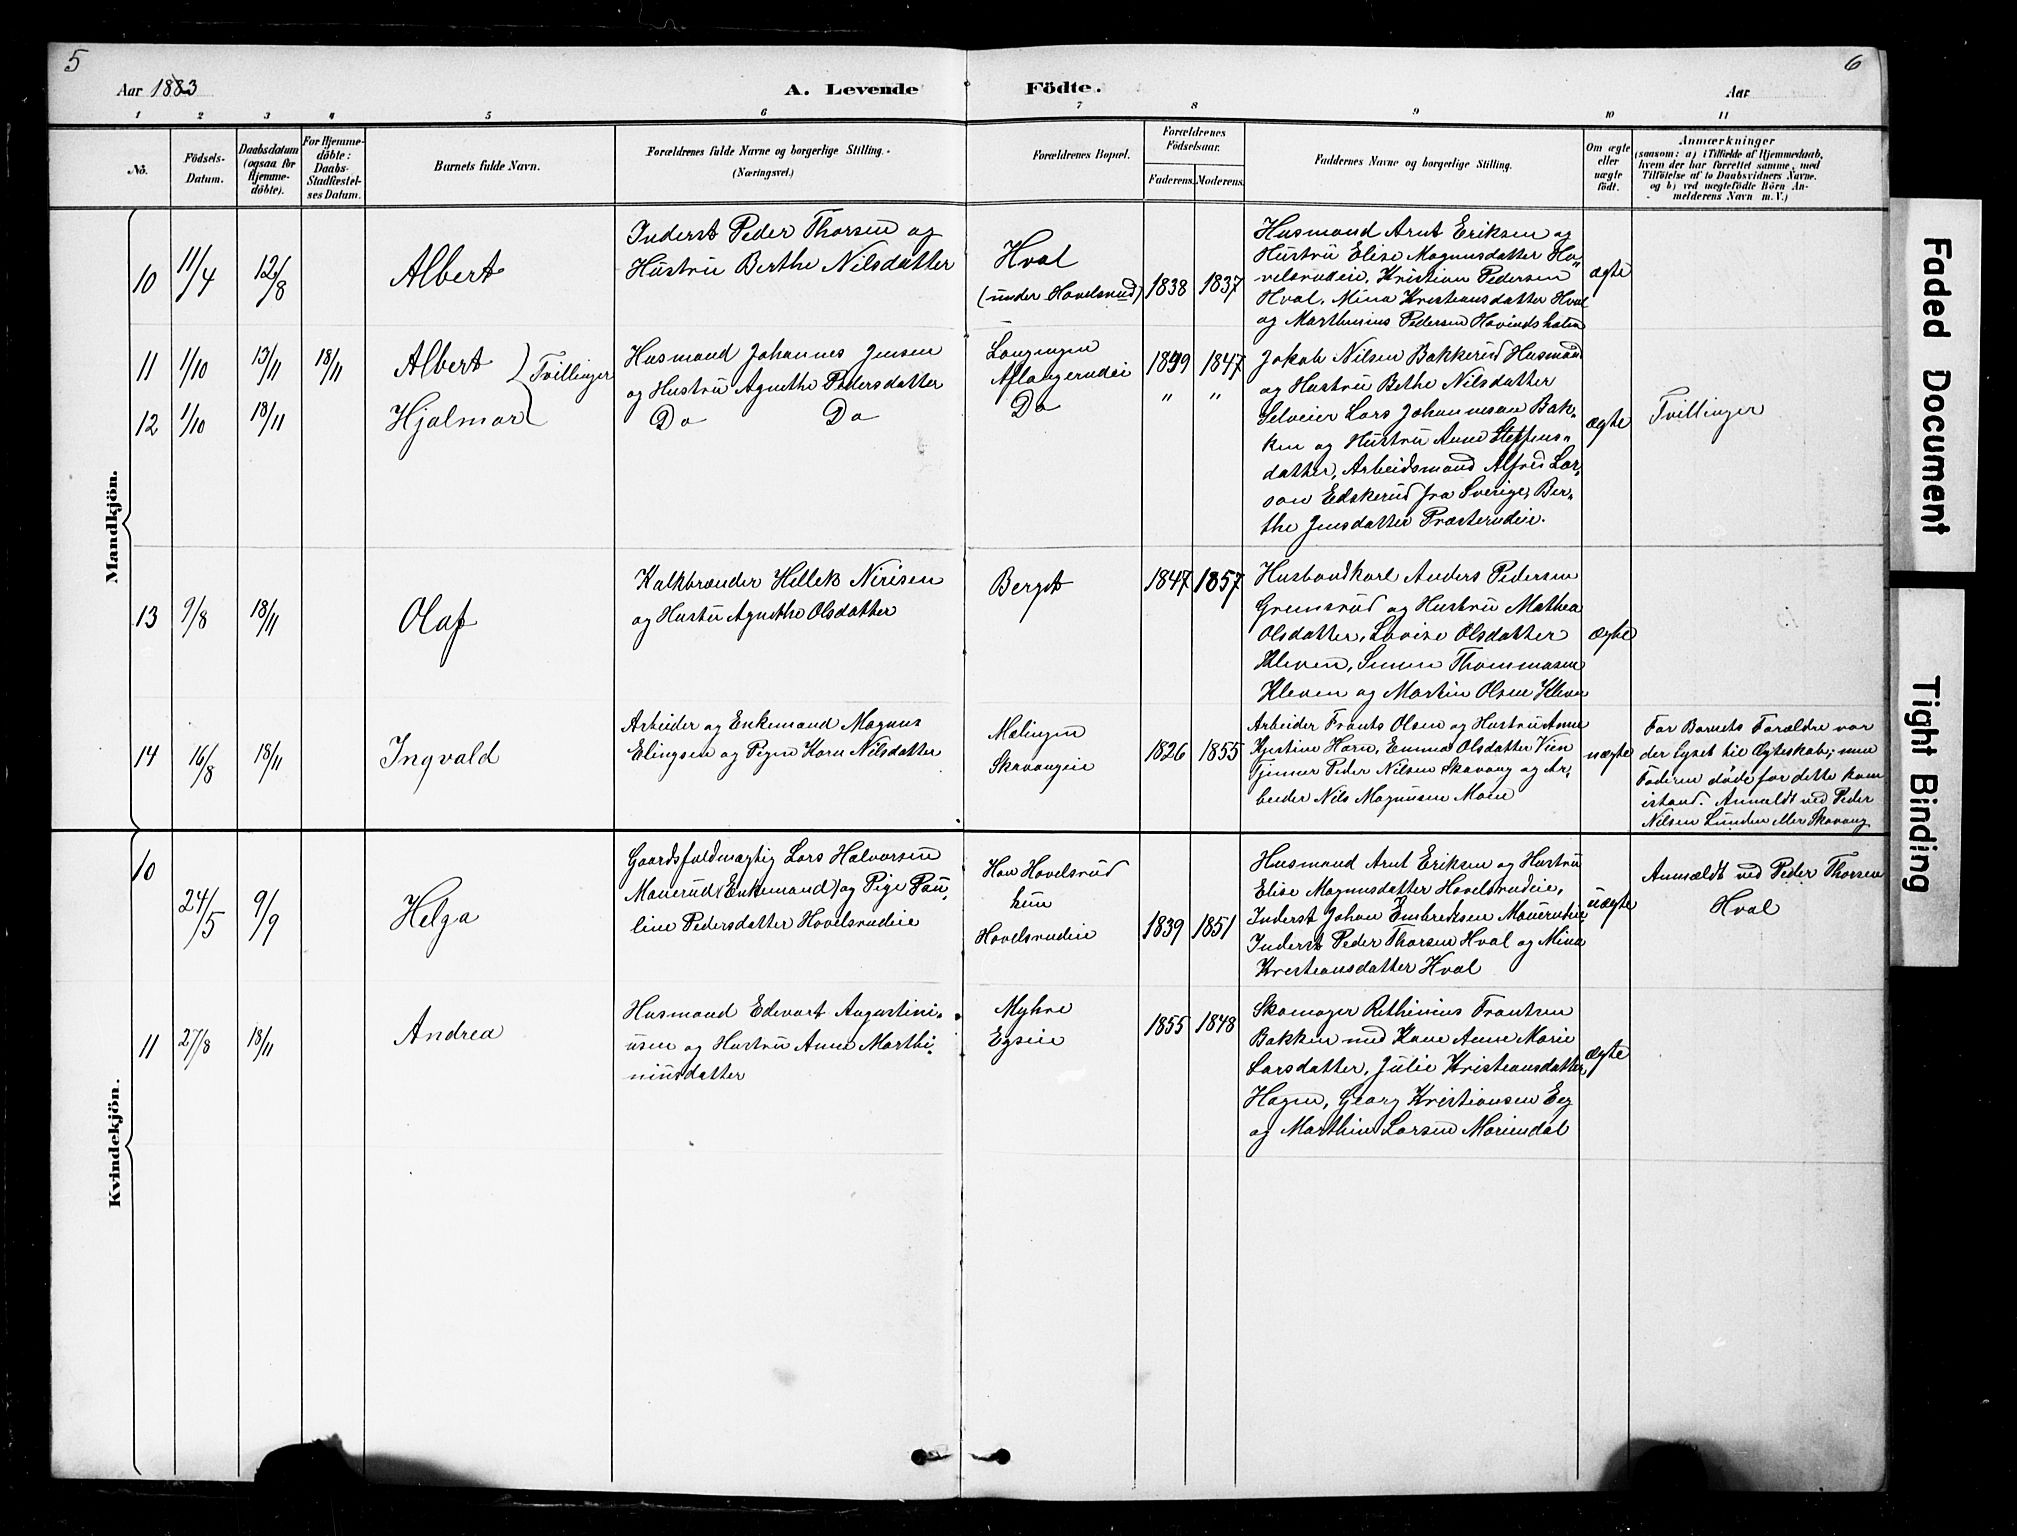 5
6
Aar 1883
A. Levende Födte.
Aar
1 2 3 4 5 6 7 8 9 10 11
No.
Födsels-
Datum.
Daabsdatum
(ogsaa for
Hjemme-
döbte).
For Hjemme-
döbte:
Daabs-
Stadfæstel-
ses Datum.
Barnets fulde Navn.
Forældrenes fulde Navne og borgerlige Stilling.
(Næringsvei.)
Forældrenes Bopæl.
Forældrenes
Födselsaar.
Faderens. Moderens.
Faddernes Navne og borgerlige Stilling.
Om ægte
eller
uægte
födt.
Anmærkninger
(saasom: a) i Tilfælde af Hjemmedaab,
hvem der har forrettet samme, med
Tilföielse af to Daabsvidners Navne.
og b) ved uægtefödte Börn An-
melderens Navn m. V.)
Mandkjön.
10 11/4 12/8
Albert
Inderst Peder Thorsen og
Hustru Berthe Nilsdatter
Hval
(under Hovelsrud)
1838 1837
Husmand Arnt Eriksen og
Hustru Elise Magnusdatter Ho-
velsrudeie, Kristian Pedersen
Hval, Mina Kristiansdatter Hval
og Marthinius Pedersen
ægte
11 1/10 13/11 18/11
Albert
Tvillinger
Husmand Johannes Jensen
og Hustru Agnethe Pedersdatter
1847
Jokab Nilsen Bakkerud Husmand
og Hustru Bethe Nilsdatter
12 1/10 18/11
Hjalmar
Do Do
Do
" "
Selveier Lars Johannesen Bak-
ken og Hustru Anne Steffens-
datter, Arbeidsmand Alfred Lar-
son Edskerud fra Sverige, Ber-
the Jensdatter Præsterudeie.
ægte
Tvillinger
13 9/8 18/11
Olaf
Kalkbrænder Hellek Nirisen
og Hustru Agnethe Olsdatter
Berget
1847 1857
Husbondkarl Anders Pedersen
Gremsrud og Hustru Mathea
Olsdatter, Lovise Olsdatter
Kleven, Simen Thommasen
Kleven og Martin Olsen Kleven
ægte
14 16/8 18/11
Ingvald
Arbeider og Enkemand Magnus
Elingsen og Pigen Karn Nilsdatter
Mælingen
Skavangeie
1826 1855
Arbeider Frants Olsen og Hustru Anne
Kjestine Horn, Emma Olsdatter Vien
Tjener Peder Nilsen Skavang og Ar-
beider Nils Magnusen Moen
uægte
For Barnets Forældre var
der lyset til Ægteskab; men
Faderen døde før dette kom
istand. Anmeldt ved Peder
Nilsen Lunden eller Skavang
Kvindekjön.
10 24/5 9/9
Helga
Gaardsfuldmægtig Lars Halvorsen
Mauerud (Enkemand) og Pige Pau-
line Pedersdatter Hovelsrudeie
Han Hovelsrud
hun
Hovelsrudeie
1839 1851
Husmand Arnt Eriksen og Hustru
Elise Magnusdatter Hovelsrudeie,
Inderst Johan Embretsen Mauerudeie
Inderst Peder Thorsen Hval og Mina
Kristiansdatter Hval
uægte
Anmældt ved Peder Thorsen
Hval
11 27/8 18/11
Andrea
Husmand Edevart Augustini-
usen og Hustru Anne Marthi-
niusdatter
Myhre
Egseie
1855 1848
Skomager Rethinius Frantsen
Bakken med Kone Anne Marie
Larsdatter, Julie Kristiansdatter
Hagen, Georg Kristiansen Eeg
og Marthin Larsen Mariendal
ægte
Faded Document
Tight Binding